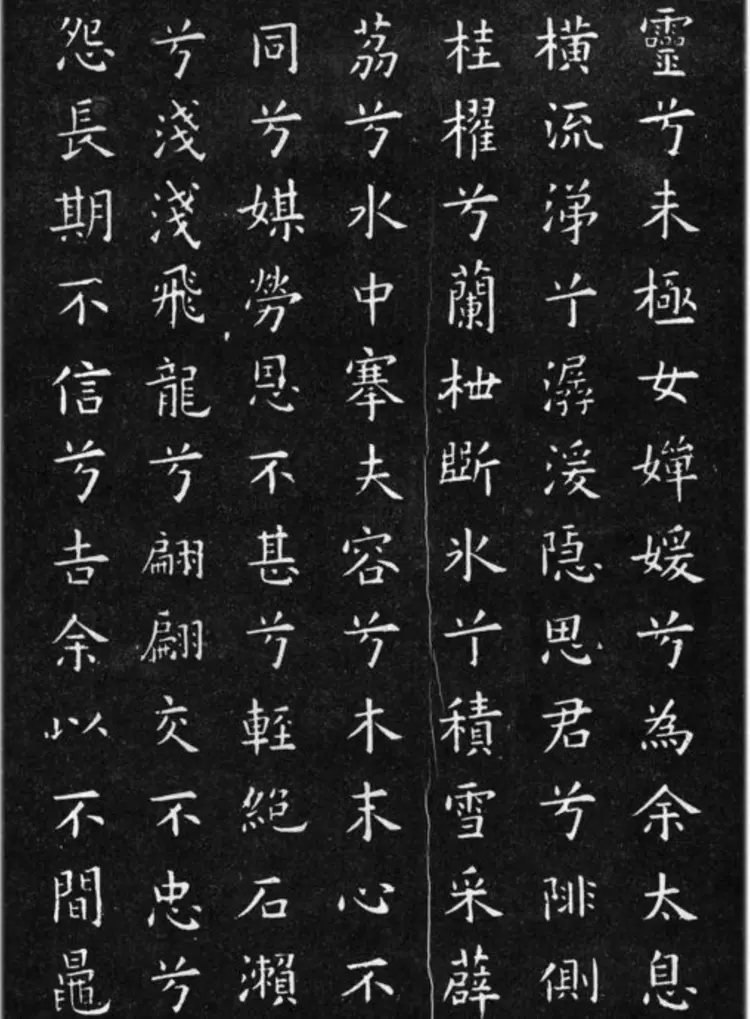 靈兮未極女嬋媛兮為余太息
橫流涕兮潺湲隱思君兮陫側
桂櫂兮蘭枻斲氷兮積雪采薜
荔兮水中搴夫容兮木末心不
同兮媒勞恩不甚兮輕絕石瀨
兮淺淺飛龍兮翩翩交不忠兮
怨長期不信兮告余以不閒鼂